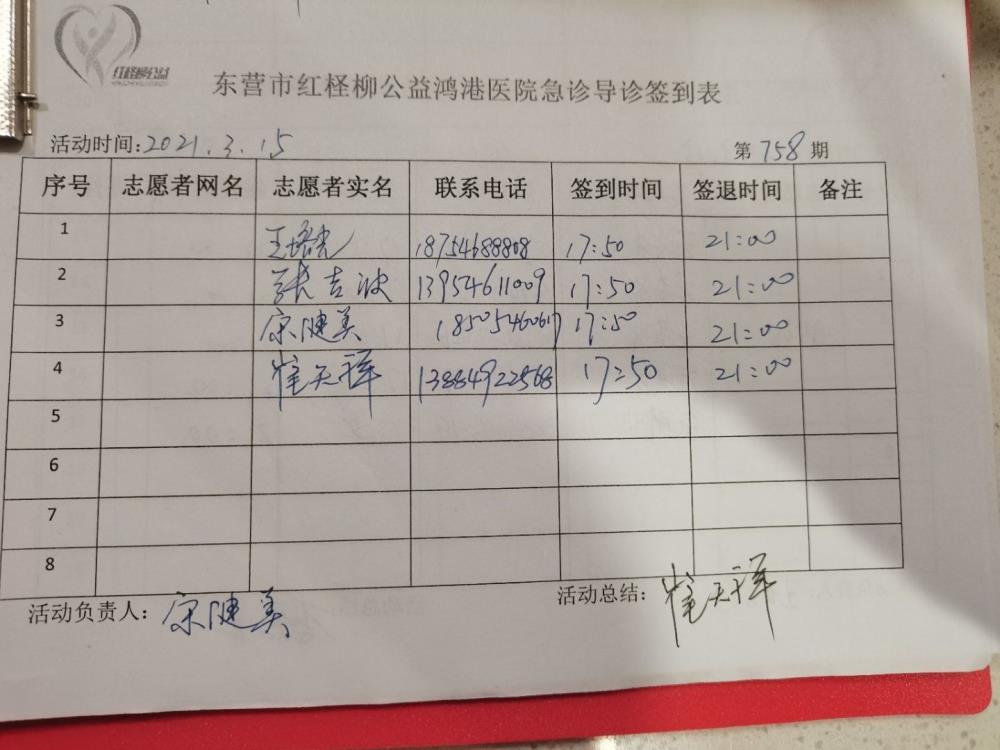 红柽柳公益
东营市红柽柳公益鸿港医院急诊导诊签到表
活动时间:2021.3.15 第758期
序号 志愿者网名 志愿者实名 联系电话 签到时间 签退时间 备注
1 18754688808 17:50 21:00
2 张吉波 13954611009 17:50 21:00
3 宋健美 18505460617 17:50 21:00
4 崔天祥 13884922568 17:50 21:00
5
6
7
8
活动负责人: 宋健美 活动总结: 崔天祥